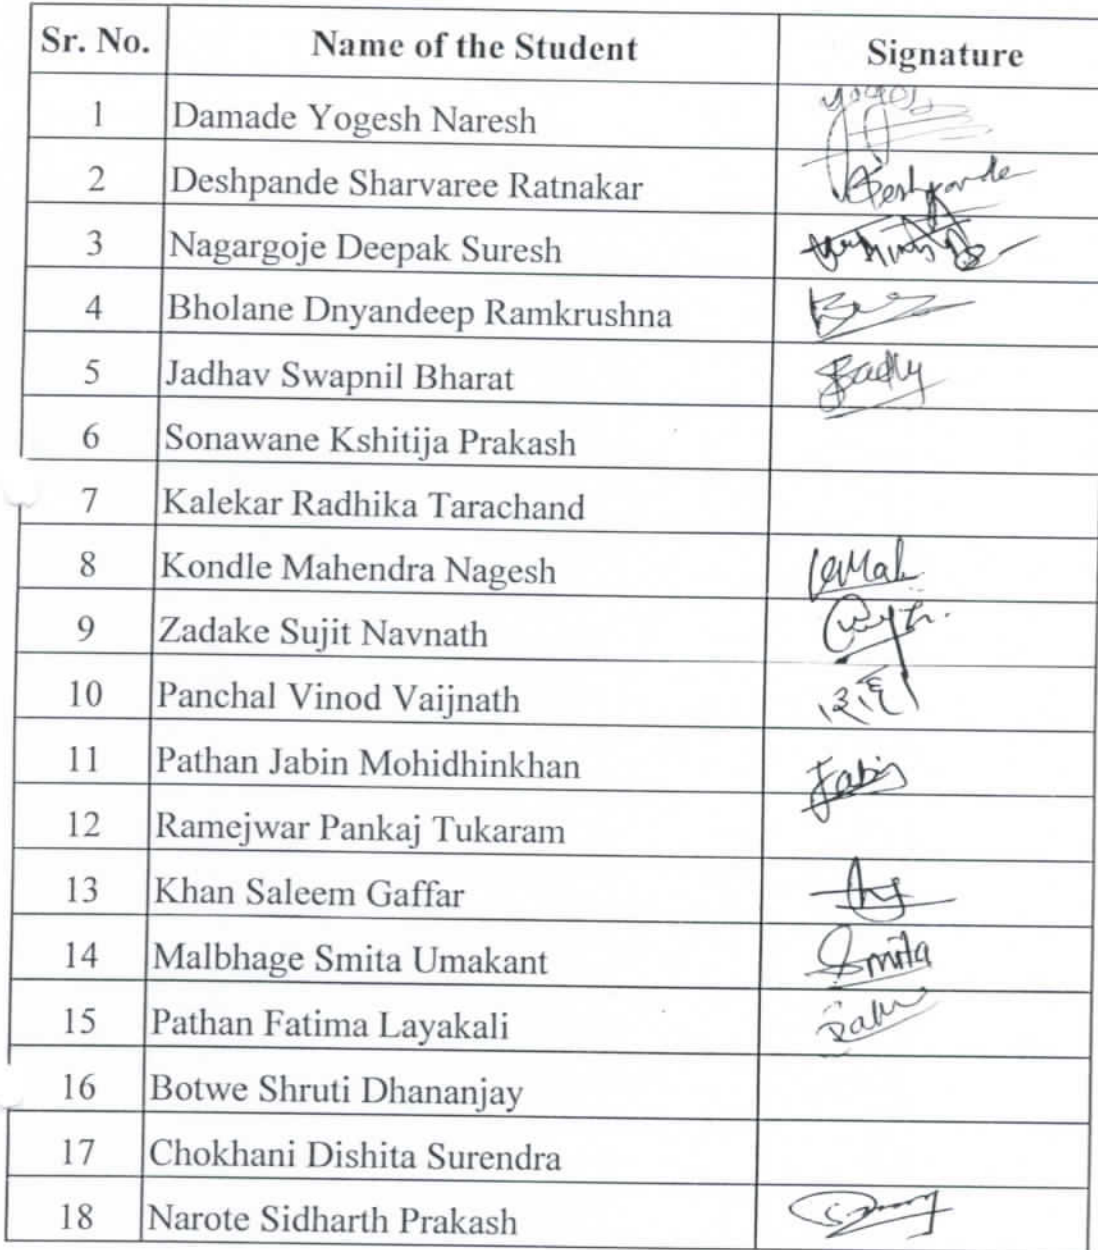 Sr. No. Name of the Student Signature
1 Damade Yogesh Naresh
2 Deshpande Sharvaree Ratnakar Deshpande
3 Nagargoje Deepak Suresh
4 Bholane Dnyandeep Ramkrushna
5 Jadhav Swapnil Bharat
6 Sonawane Kshitija Prakash
7 Kalekar Radhika Tarachand
8 Kondle Mahendra Nagesh
9 Zadake Sujit Navnath
10 Panchal Vinod Vaijnath
11 Pathan Jabin Mohidhinkhan Jabin
12 Ramejwar Pankaj Tukaram
13 Khan Saleem Gaffar
14 Malbhage Smita Umakant Smita
15 Pathan Fatima Layakali
16 Botwe Shruti Dhananjay
17 Chokhani Dishita Surendra
18 Narote Sidharth Prakash